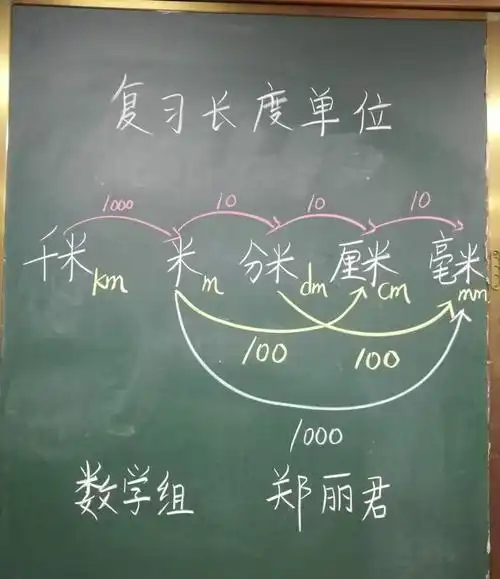 复习长度单位
1000 10 10 10
千米 km 米 m 分米 dm 厘米 cm 毫米 mm
100 100
1000
数学组 郑丽君